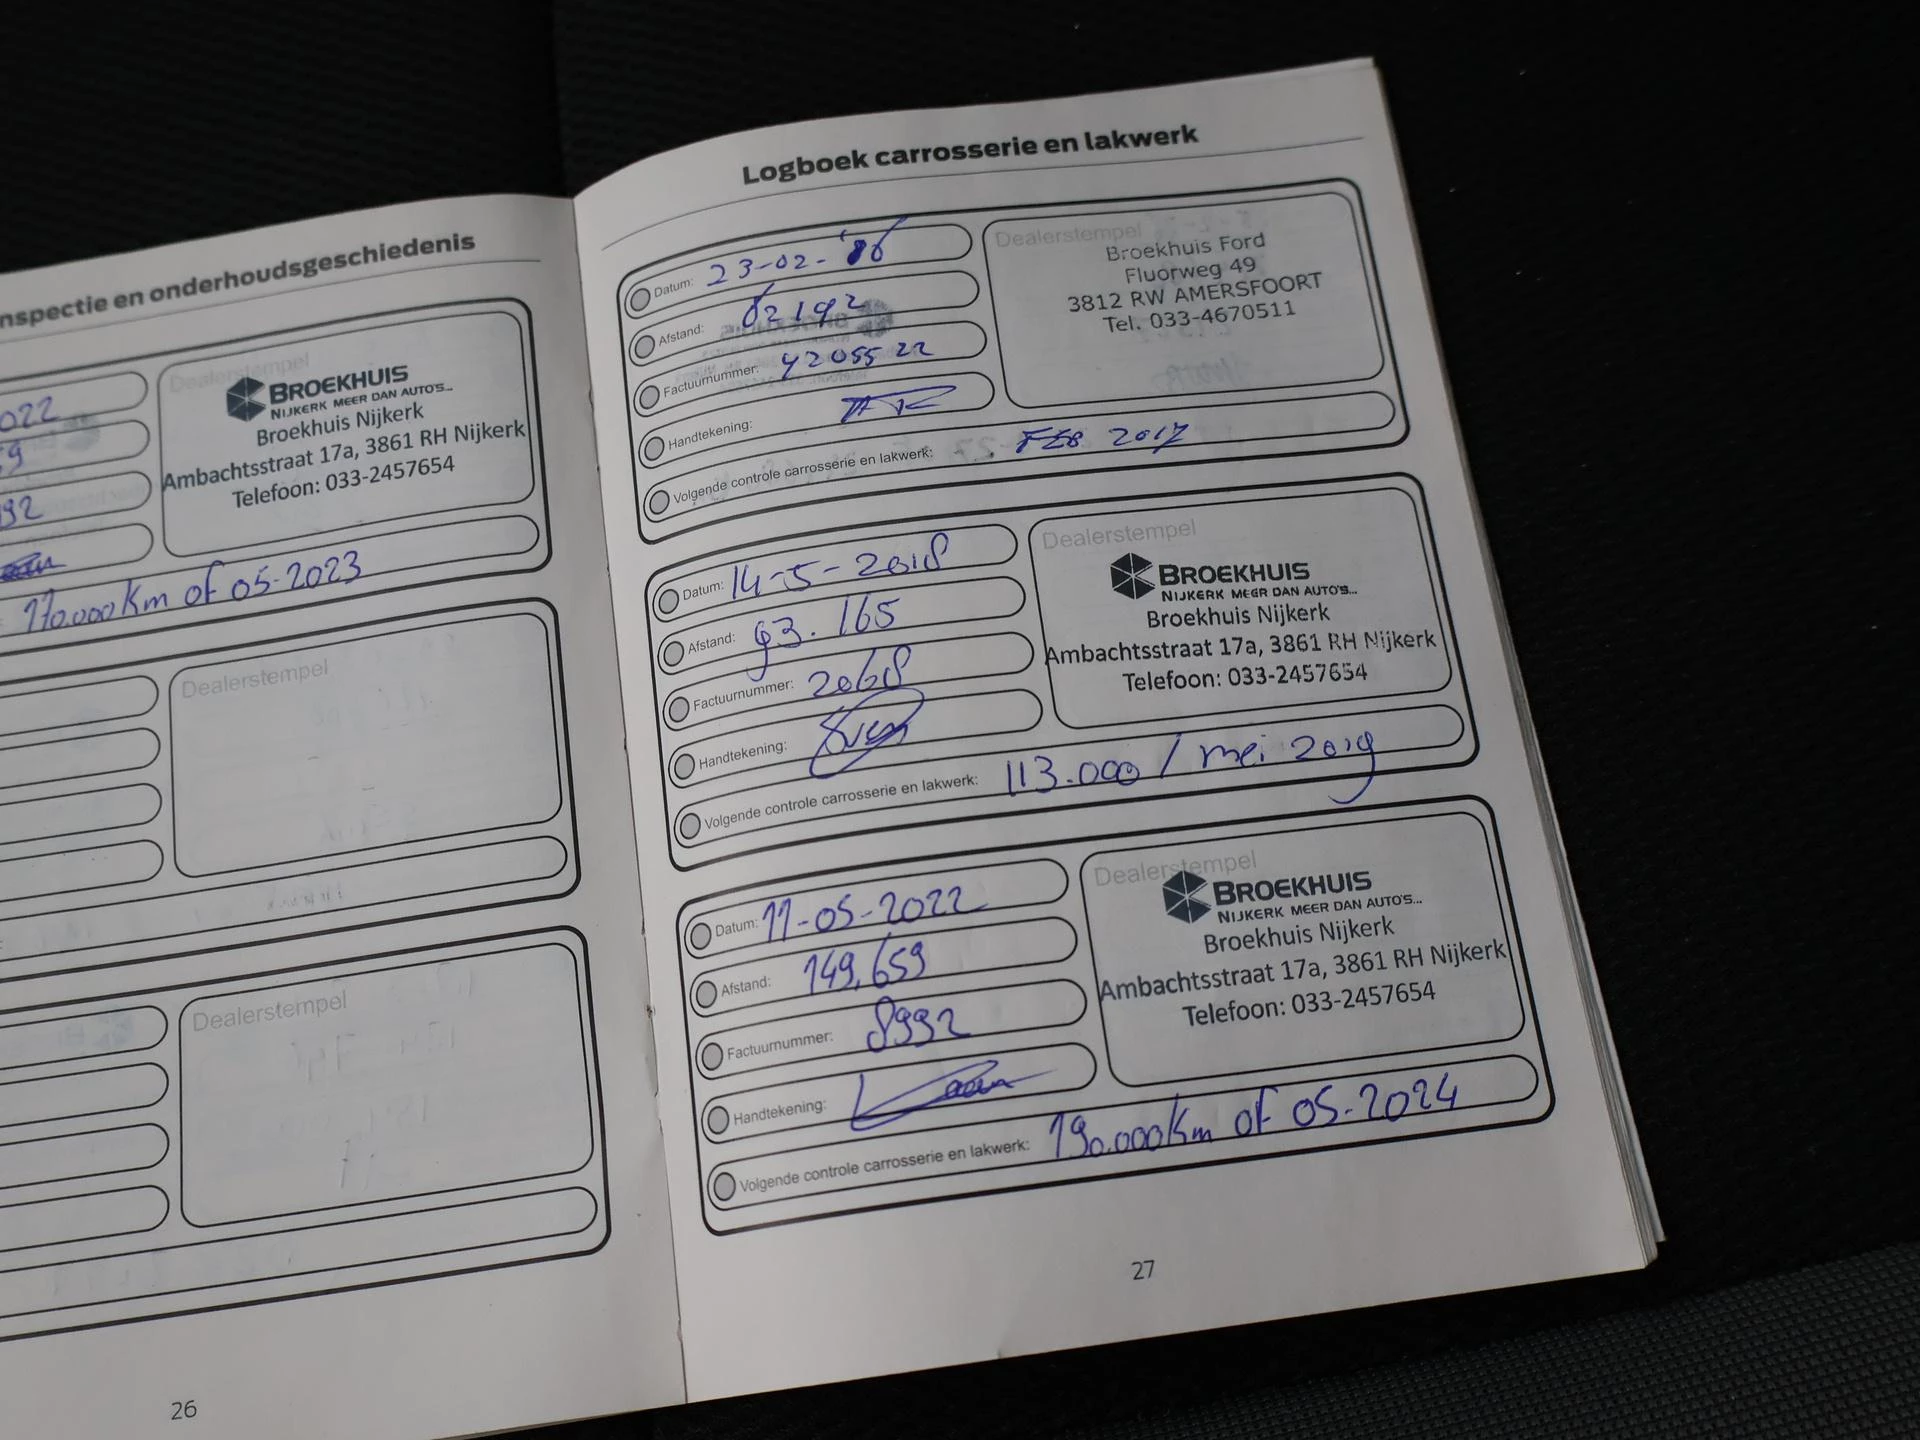 nspectie en onderhoudsgeschiedenis
022
Dealerstempel
BROEKHUIS
NIJKERK MEER DAN AUTO'S...
Broekhuis Nijkerk
Ambachtsstraat 17a, 3861 RH Nijkerk
Telefoon: 033-2457654
59
992
170.000Km of 05-2023
Dealerstempel
Dealerstempel
26
Logboek carrosserie en lakwerk
Datum: 23-02-'16
Afstand: 62192
Factuurnummer: 4205522
Handtekening:
Volgende controle carrosserie en lakwerk: FEB 2017
Dealerstempel
Broekhuis Ford
Fluorweg 49
3812 RW AMERSFOORT
Tel. 033-4670511
Datum: 14-5-2018
Afstand: 93.165
Factuurnummer: 20618
Handtekening:
Volgende controle carrosserie en lakwerk: 113.000 / mei 2019
Dealerstempel
BROEKHUIS
NIJKERK MEER DAN AUTO'S...
Broekhuis Nijkerk
Ambachtsstraat 17a, 3861 RH Nijkerk
Telefoon: 033-2457654
Datum: 11-05-2022
Afstand: 149,659
Factuurnummer: 8992
Handtekening:
Volgende controle carrosserie en lakwerk: 190.000Km of 05-2024
Dealerstempel
BROEKHUIS
NIJKERK MEER DAN AUTO'S...
Broekhuis Nijkerk
Ambachtsstraat 17a, 3861 RH Nijkerk
Telefoon: 033-2457654
27